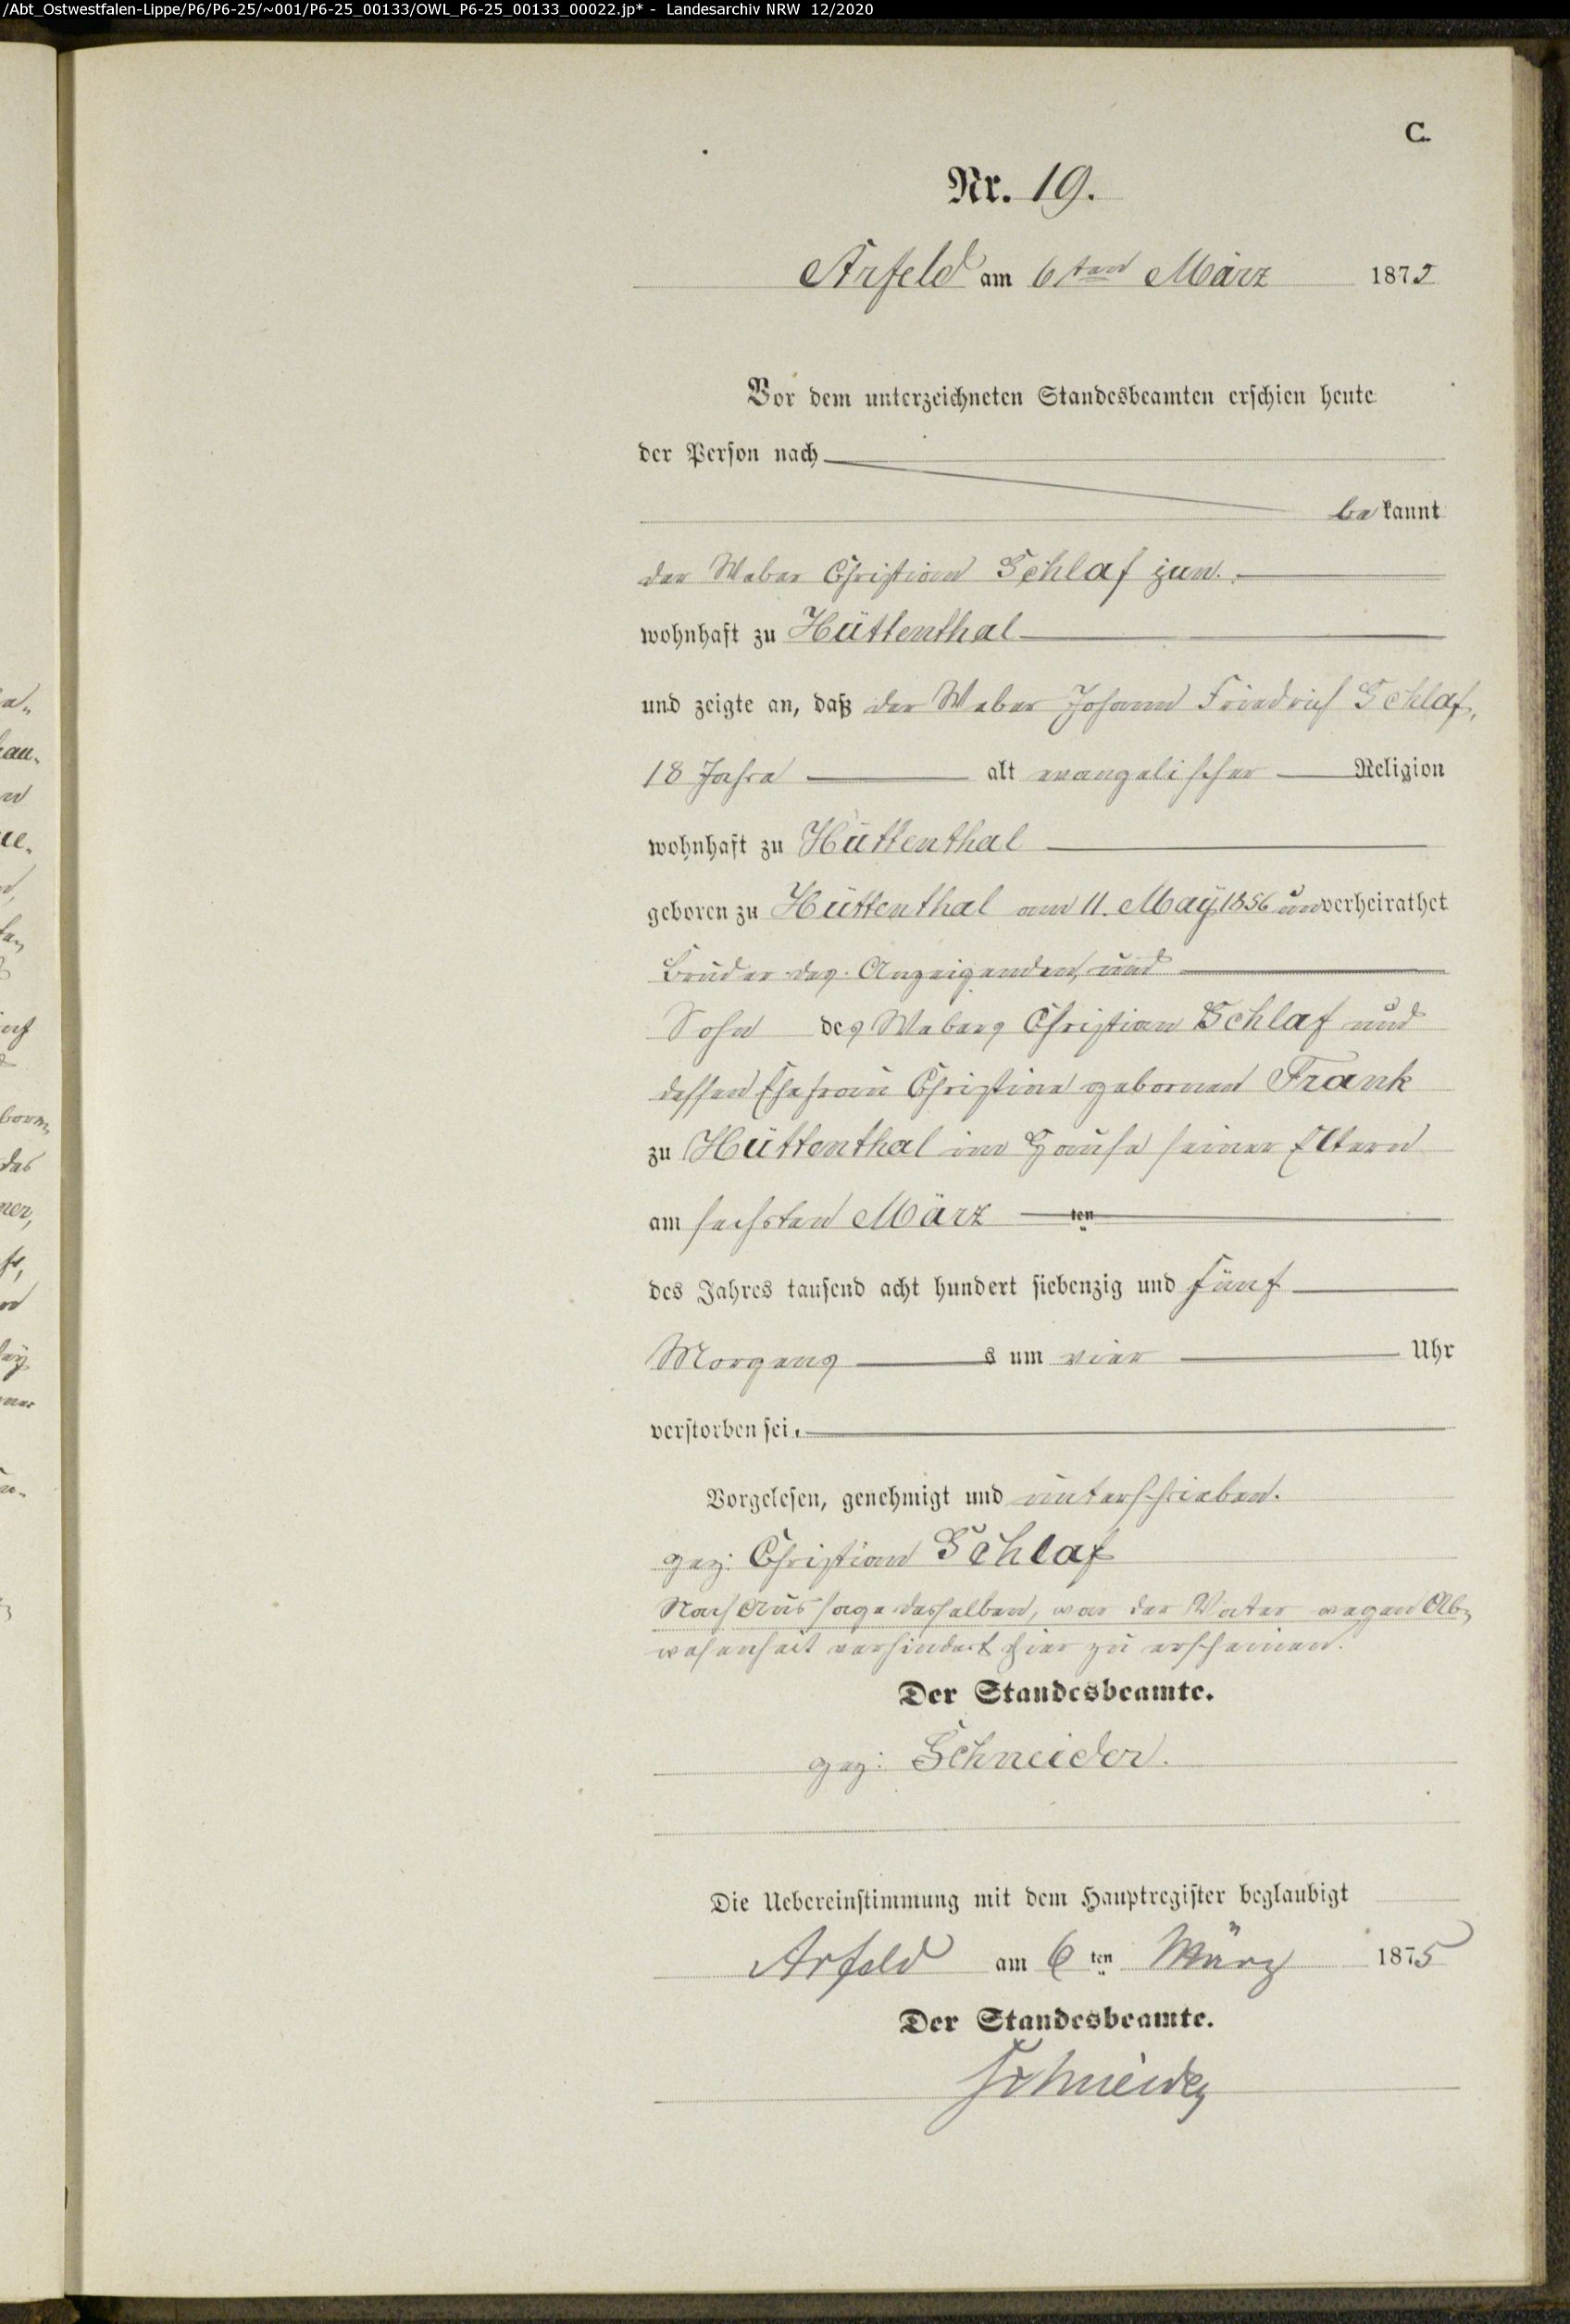 /Abt_Ostwestfalen-Lippe/P6/P6-25/~001/P6-25_00133/OWL_P6-25_00133_00022.jp* - Landesarchiv NRW 12/2020
C.
Nr. 19.
Arfeld am 6ten März 1875
Vor dem unterzeichneten Standesbeamten erschien heute
der Person nach
be kannt
der Weber Christian Schlaf jun.
wohnhaft zu Hüttenthal
und zeigte an, daß der Weber Johann Friedrich Schlaf,
18 Jahre alt evangelischer Religion
wohnhaft zu Hüttenthal
geboren zu Hüttenthal am 11. May 1856 unverheirathet
Bruder des Anzeigenden, und
Sohn des Webers Christian Schlaf und
dessen Ehefrau Christine gebornen Frank
zu Hüttenthal im Hause seiner Eltern
am sechsten März ten
des Jahres tausend acht hundert siebenzig und fünf
Morgens s um vier Uhr
verstorben sei.
Vorgelesen, genehmigt und unterschrieben.
gez: Christian Schlaf
Nach Aussage desselben, war der Vater wegen Ab-
wesenheit verhindert hier zu erscheinen.
Der Standesbeamte.
gez: Schneider.
Die Uebereinstimmung mit dem Hauptregister beglaubigt
Arfeld am 6 ten März 1875
Der Standesbeamte.
Schneider